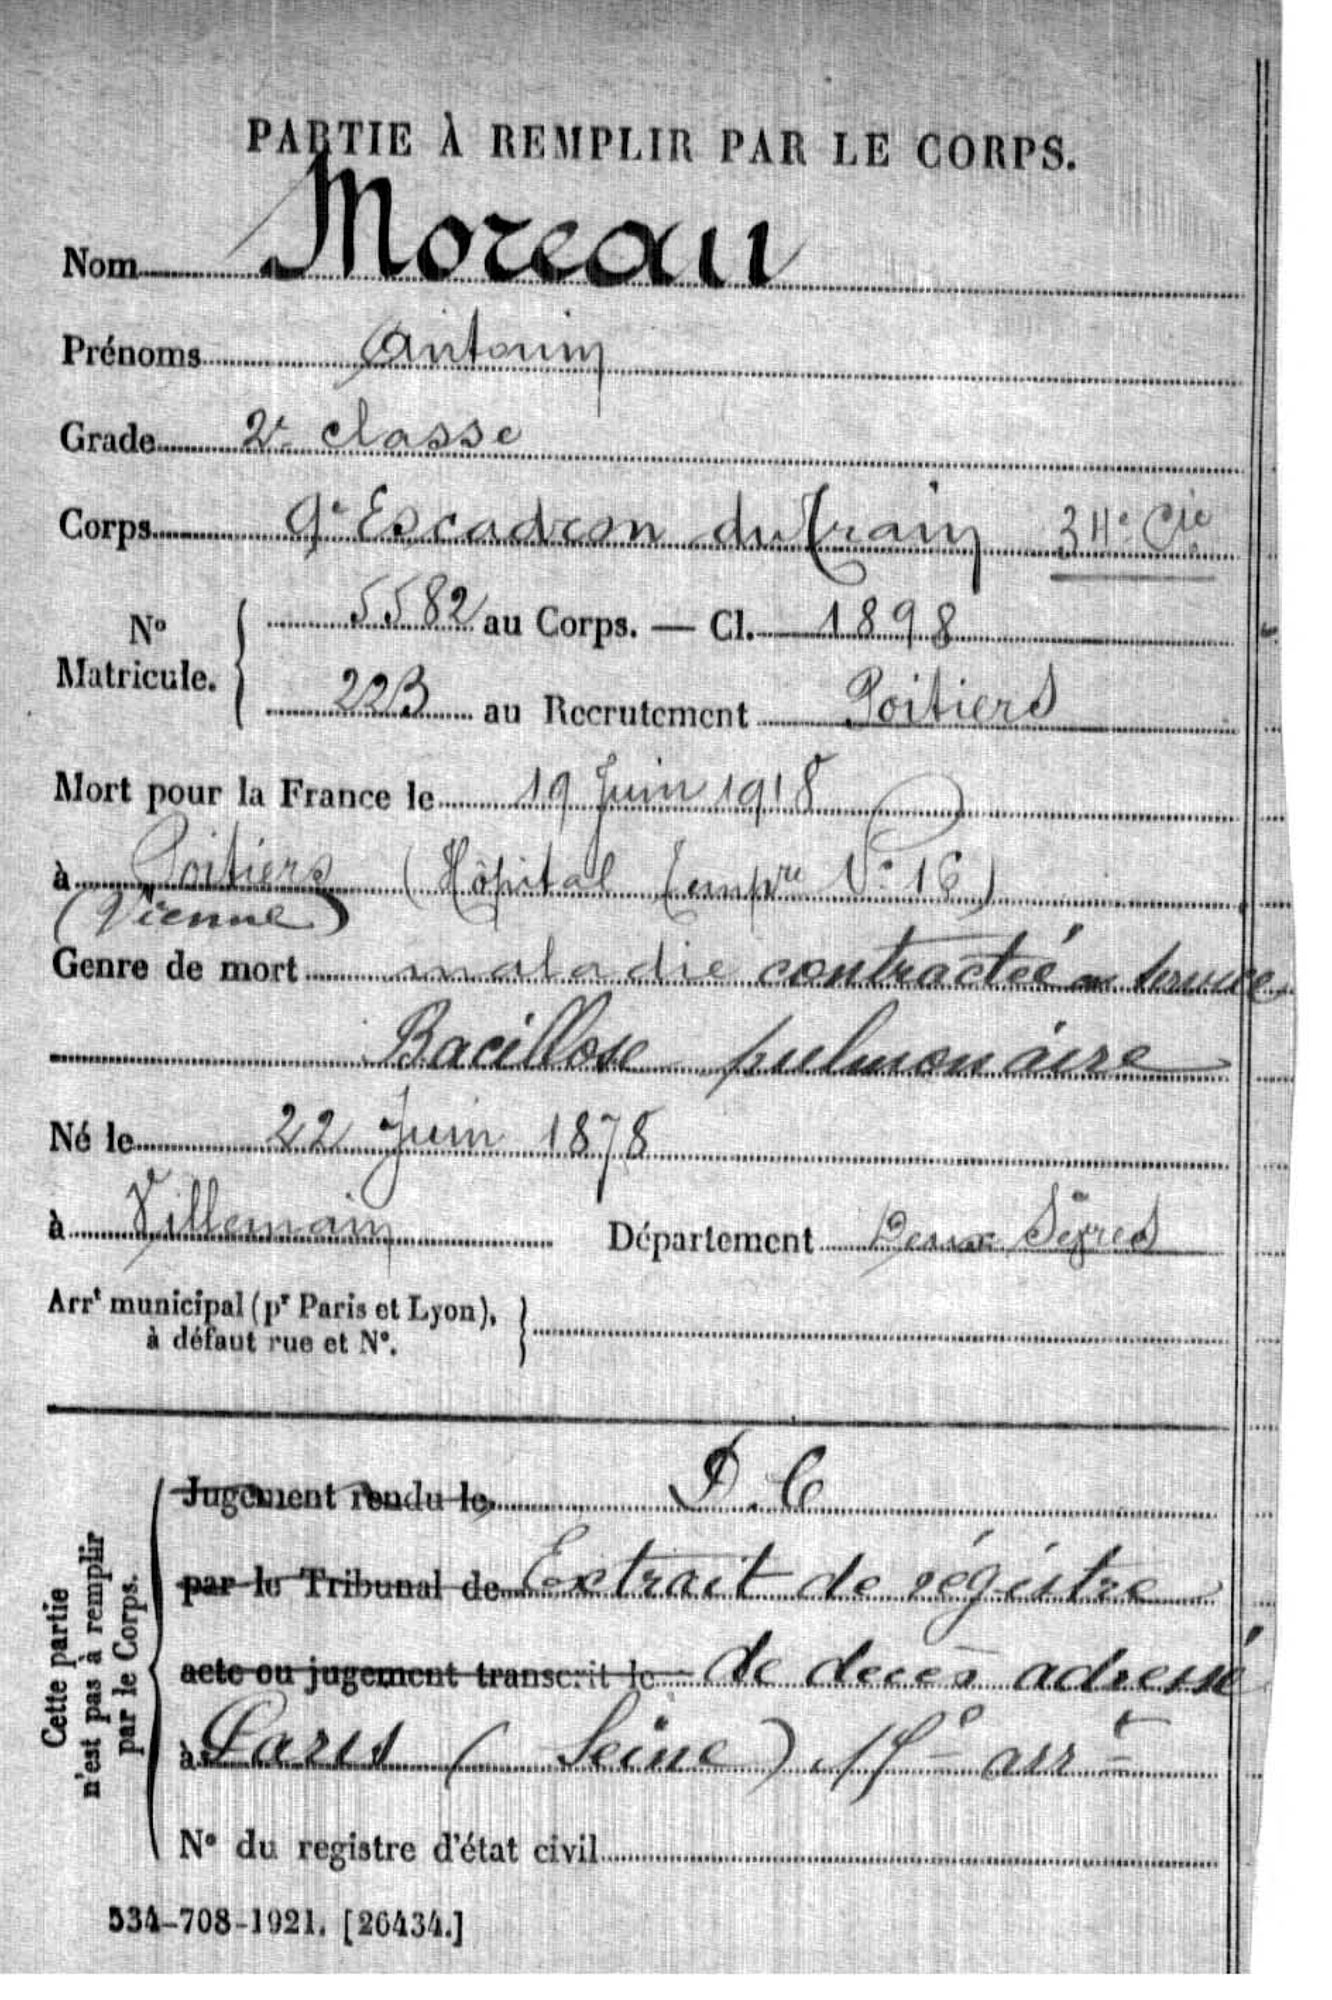 PARTIE À REMPLIR PAR LE CORPS.
Nom Moreau
Prénoms Antonin
Grade 2e classe
Corps 9e Escadron du Train 34e Cie
No Matricule. 5582 au Corps. — Cl. 1898
223 au Recrutement Poitiers
Mort pour la France le 19 Juin 1918
à Poitiers (Hôpital Tempre No 16)
(Vienne)
Genre de mort maladie contractée en service
Bacillose pulmonaire
Né le 22 Juin 1878
à Villemain Département Deux Sèvres
Arrt municipal (pr Paris et Lyon),
à défaut rue et No.
Cette partie
n'est pas à remplir
par le Corps.
Jugement rendu le D.C
par le Tribunal de Extrait de régistre
acte ou jugement transcrit le de decès adressé
à Paris (Seine) arrt
No du registre d'état civil
534-708-1921. [26434.]